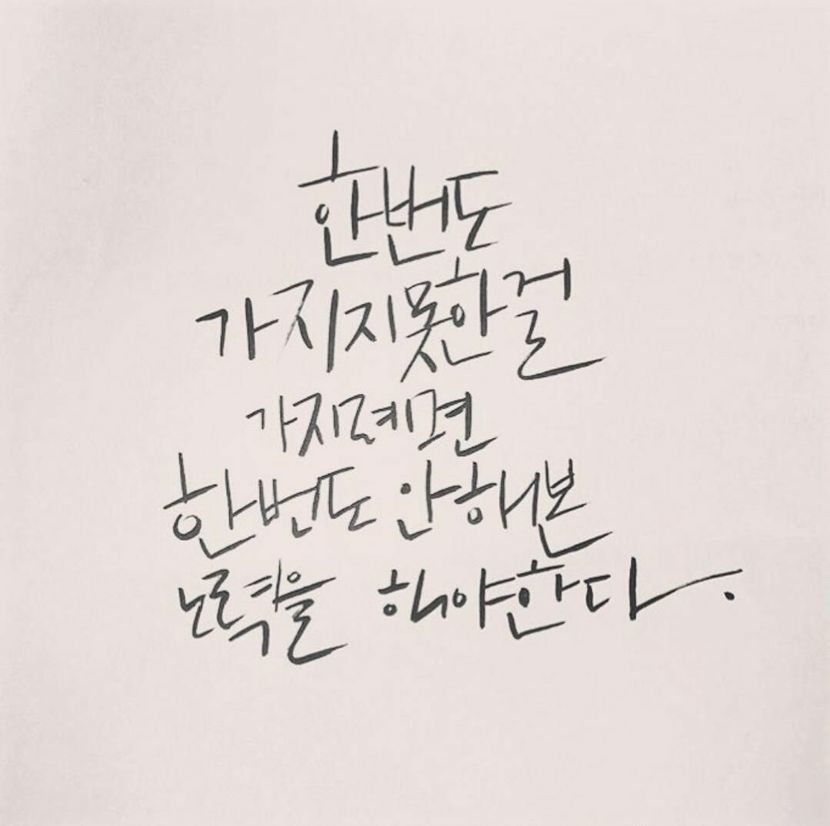 한번도
가지지못한걸
가지려면
한번도 안해본
노력을 해야한다.